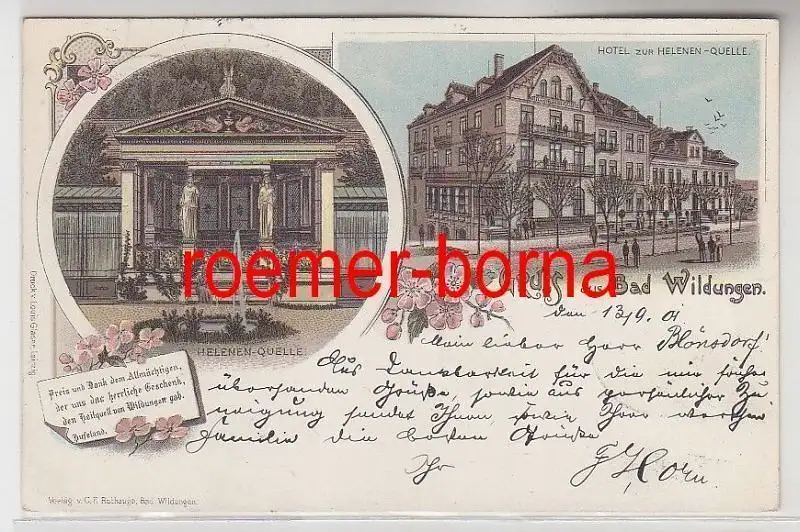 HOTEL ZUR HELENEN-QUELLE.
roemer-borna
Gruss aus Bad Wildungen.
HELENEN-QUELLE.
Preis und Dank dem Allmächtigen,
der uns das herrliche Geschenk,
den Heilquell von Wildungen gab.
Hufeland.
Druck v. Louis Glaser, Leipzig
den 13/9. 01
Mein lieber Herr Blönsdorf
Aus Dankbarkeit für die mir früher
übersandten Grüße, sowie aus persönlicher Zu
neigung sendet Ihnen, sowie Ihrer werthen
Familie die besten Grüße
Ihr F. Horn.
Verlag v. C. F. Rothauge, Bad Wildungen.